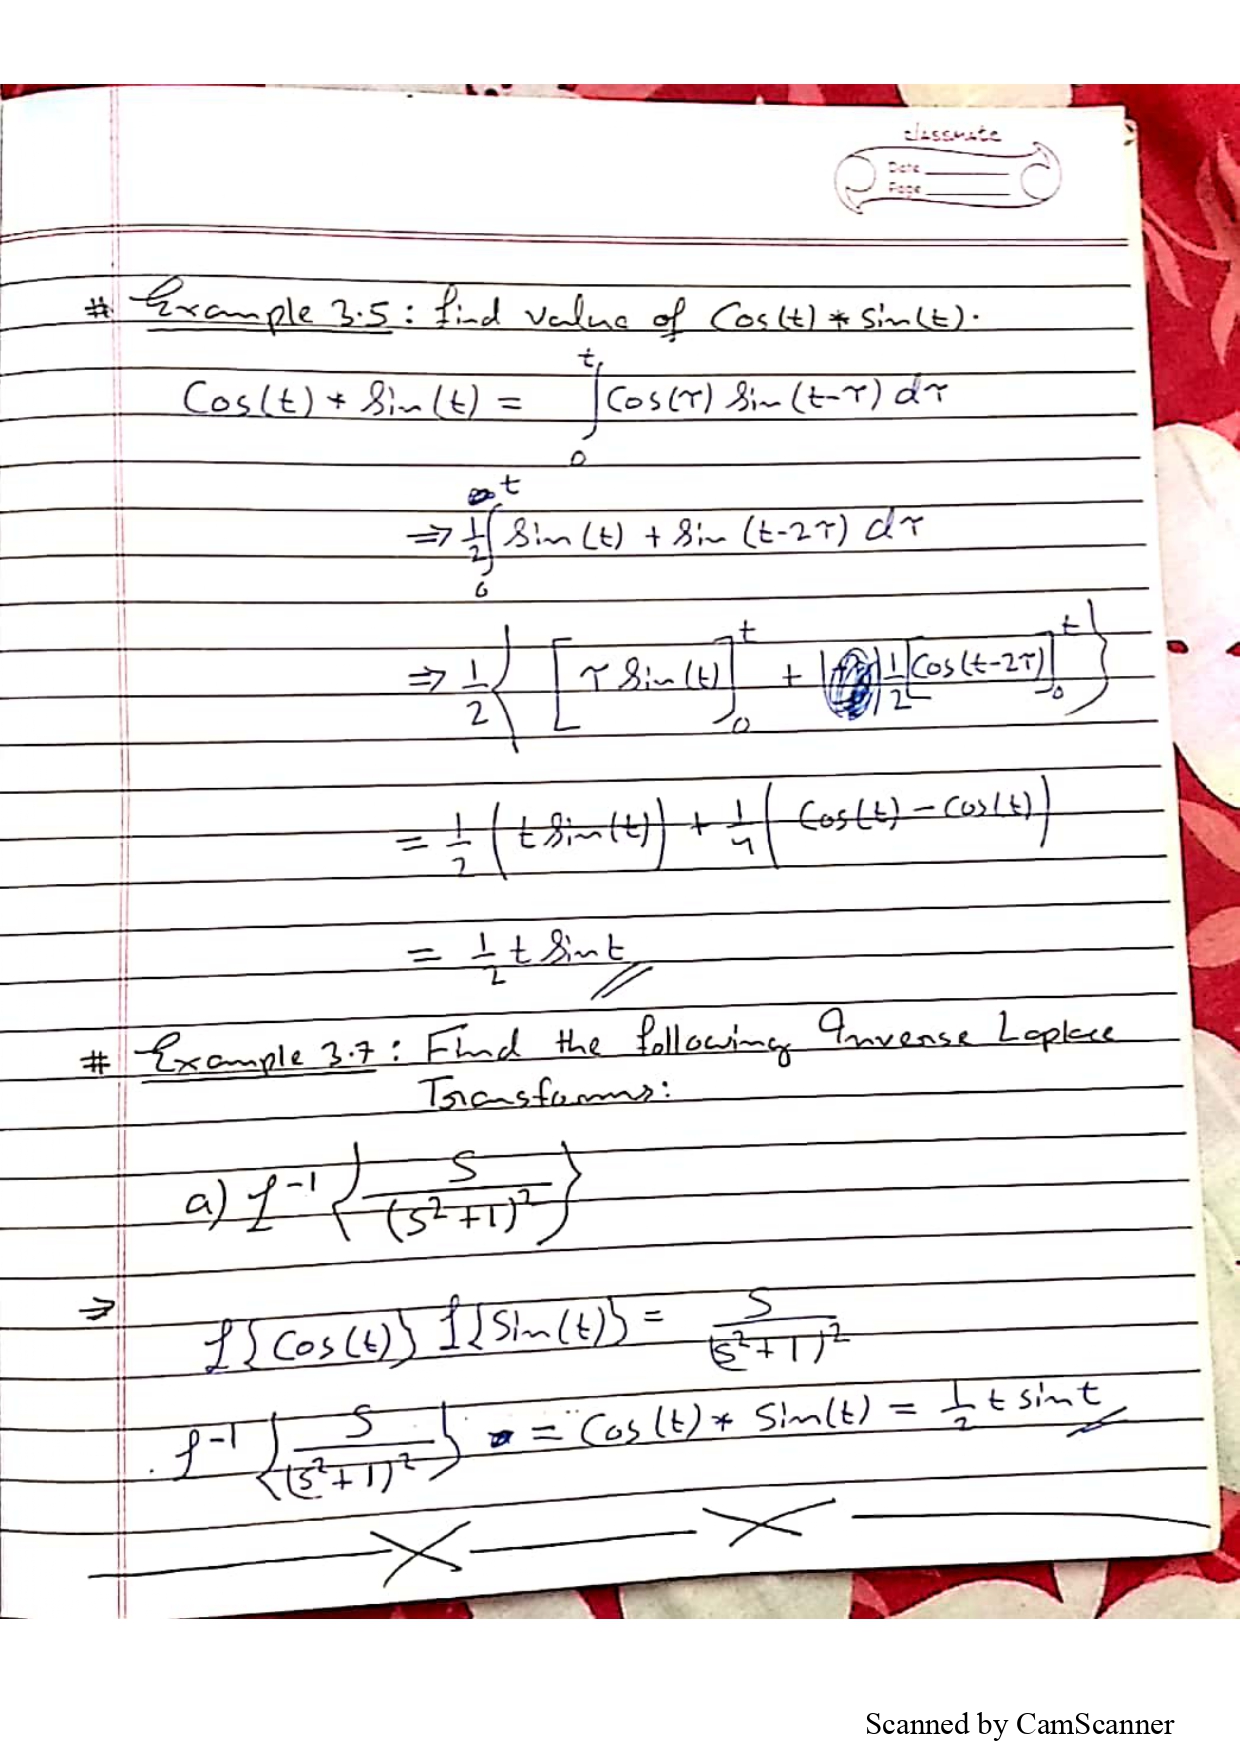 classmate
Date
Page
# Example 3.5 : find value of Cos(t) * Sin(t).
Cos(t) * Sin(t) = ∫₀ᵗ Cos(τ) Sin(t-τ) dτ
⇒ 1/2 ∫₀ᵗ Sin(t) + Sin(t-2τ) dτ
⇒ 1/2 { [τ Sin(t)]₀ᵗ + 1/2 [Cos(t-2τ)]₀ᵗ }
= 1/2 (t Sin(t)) + 1/4 (Cos(t) - Cos(t))
= 1/2 t Sin t
# Example 3.7 : Find the following Inverse Laplace
Transforms:
a) ℒ⁻¹ { S/(s²+1)² }
⇒ ℒ{Cos(t)} ℒ{Sin(t)} = S/(s²+1)²
ℒ⁻¹ { S/(s²+1)² } = Cos(t) * Sin(t) = 1/2 t sint
Scanned by CamScanner